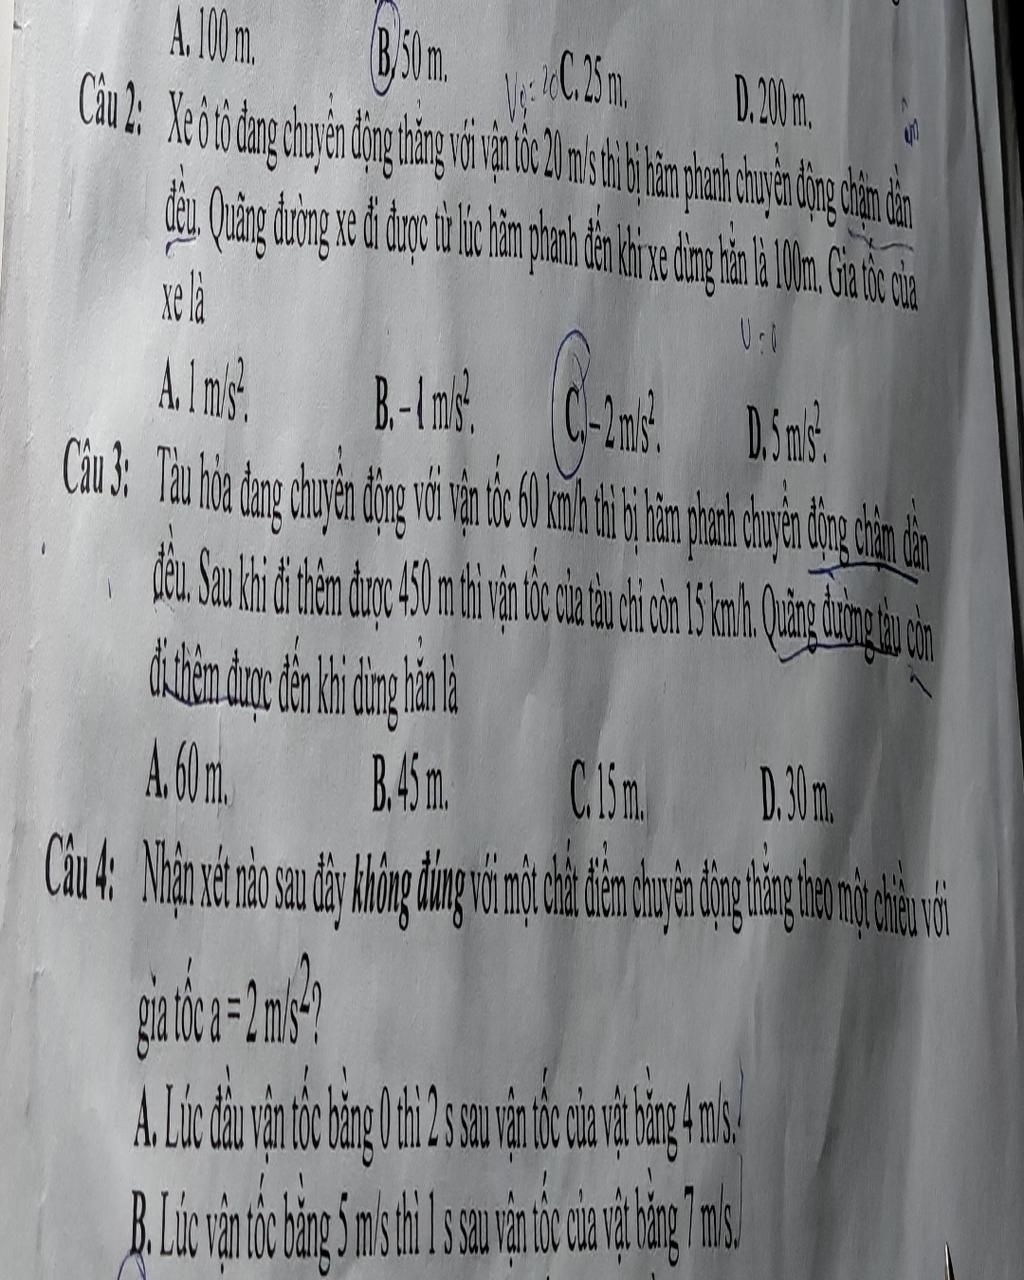 A. 100 m. B. 50 m. C. 25 m. D. 200 m.
V₀ = 20
Câu 2: Xe ô tô đang chuyển động thẳng với vận tốc 20 m/s thì bị hãm phanh chuyển động chậm dần
đều. Quãng đường xe đi được từ lúc hãm phanh đến khi xe dừng hẳn là 100m. Gia tốc của
xe là
V = 0
A. 1 m/s². B. – 1 m/s². C. – 2 m/s². D. 5 m/s².
Câu 3: Tàu hỏa đang chuyển động với vận tốc 60 km/h thì bị hãm phanh chuyển động chậm dần
đều. Sau khi đi thêm được 450 m thì vận tốc của tàu chỉ còn 15 km/h. Quãng đường tàu còn
đi thêm được đến khi dừng hẳn là
A. 60 m. B. 45 m. C. 15 m. D. 30 m.
Câu 4: Nhận xét nào sau đây không đúng với một chất điểm chuyển động thẳng theo một chiều với
gia tốc a = 2 m/s²?
A. Lúc đầu vận tốc bằng 0 thì 2 s sau vận tốc của vật bằng 4 m/s.
B. Lúc vận tốc bằng 5 m/s thì 1 s sau vận tốc của vật bằng 7 m/s.